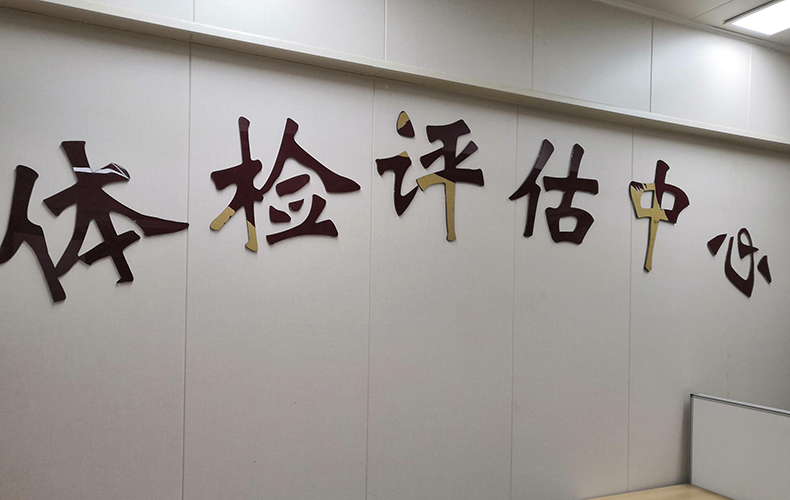 体检评估中心